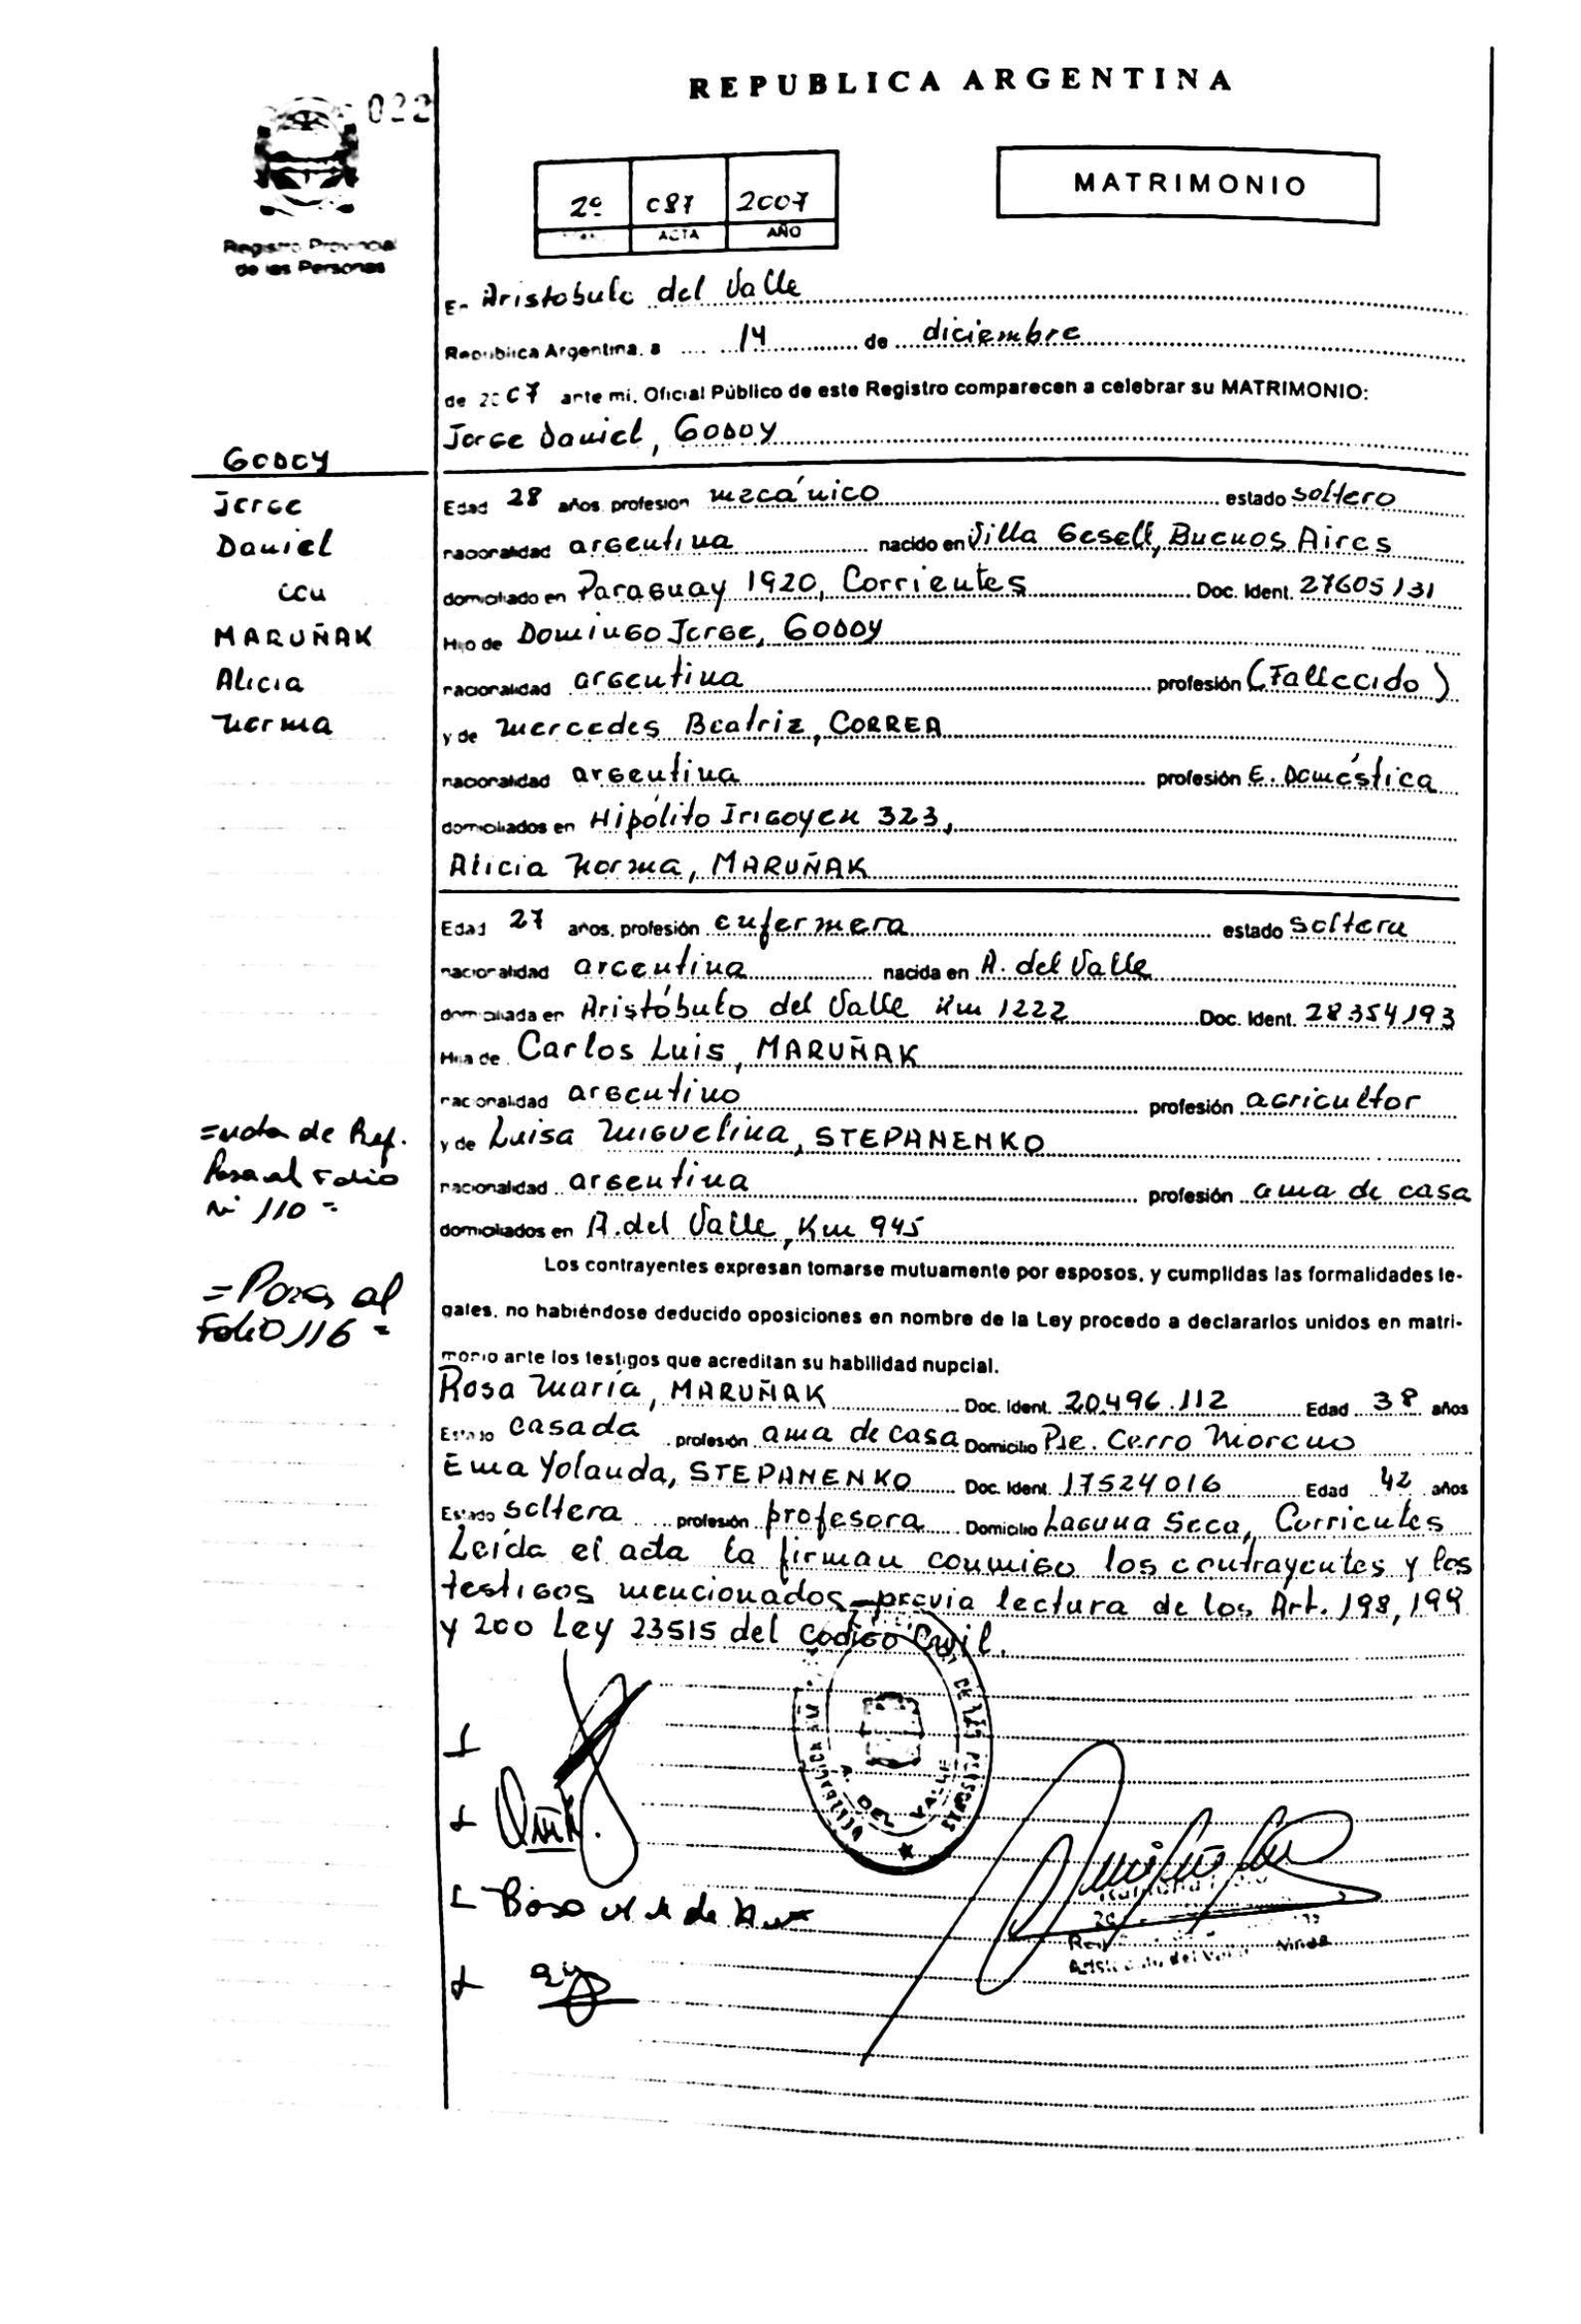 REPUBLICA ARGENTINA
022
MATRIMONIO
2º 087 2007
ACTA AÑO
Registro Provincial
de las Personas
En Aristobulo del Valle
Republica Argentina, a 14 de diciembre
de 2007 ante mi, Oficial Público de este Registro comparecen a celebrar su MATRIMONIO:
Jorge Daniel, GODOY
GODOY
Jorge
Daniel
con
MARUÑAK
Alicia
Norma
Edad 28 años, profesión mecánico estado soltero
nacionalidad argentina nacido en Villa Gesell, Buenos Aires
domiciliado en Paraguay 1920, Corrientes Doc. Ident. 27605131
Hijo de Domingo Jorge, GODOY
nacionalidad argentina profesión (Fallecido)
y de Mercedes Beatriz, CORREA
nacionalidad argentina profesión E. Doméstica
domiciliados en Hipólito Irigoyen 323,
Alicia Norma, MARUÑAK
Edad 27 años, profesión enfermera estado soltera
nacionalidad argentina nacida en A. del Valle
domiciliada en Aristóbulo del Valle Km 1222 Doc. Ident. 28354193
Hija de Carlos Luis, MARUÑAK
nacionalidad argentino profesión agricultor
y de Luisa Miguelina, STEPANENKO
nacionalidad argentina profesión ama de casa
domiciliados en A. del Valle, Km 945
=nota de Ref.
Pasa al Folio
Nº 110 =
=Pasa al
Folio 116 =
Los contrayentes expresan tomarse mutuamente por esposos, y cumplidas las formalidades le-
gales, no habiéndose deducido oposiciones en nombre de la Ley procedo a declararlos unidos en matri-
monio ante los testigos que acreditan su habilidad nupcial.
Rosa María, MARUÑAK Doc. Ident. 20.496.112 Edad 38 años
Estado casada profesión ama de casa Domicilio Pje. Cerro Moreno
Ema Yolanda, STEPANENKO Doc. Ident. 17524016 Edad 42 años
Estado soltera profesión profesora Domicilio Laguna Seca, Corrientes
Leída el acta la firman conmigo los contrayentes y los
testigos mencionados previa lectura de los Art. 198, 199
y 200 Ley 23515 del Codigo Civil.
DE LAS PERSONAS
A. DEL VALLE